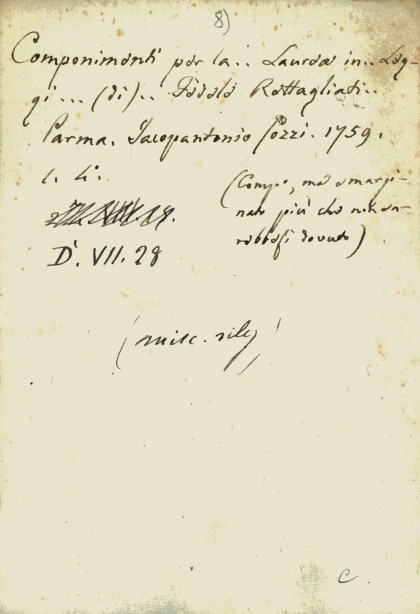 8)
Componimenti per la.. Laurea in.. Leg-
gi... (di).. Fedele Rottagliati..
Parma. Jacopantonio Gozzi. 1759.
(Comp., ma smargi-
nato più che non sa-
rebbesi dovuto)
D. VII. 28
(misc. rileg)
C.